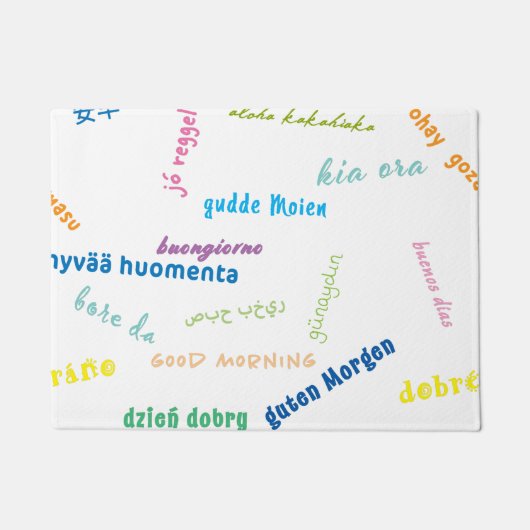 aloha kakahiaka
ohay goza
jó reggel
kia ora
gudde Moien
masu
buongiorno
hyvää huomenta
buenos días
günaydın
bore da
صبح بخیر
GOOD MORNING
ráno
guten Morgen
dobré
dzień dobry